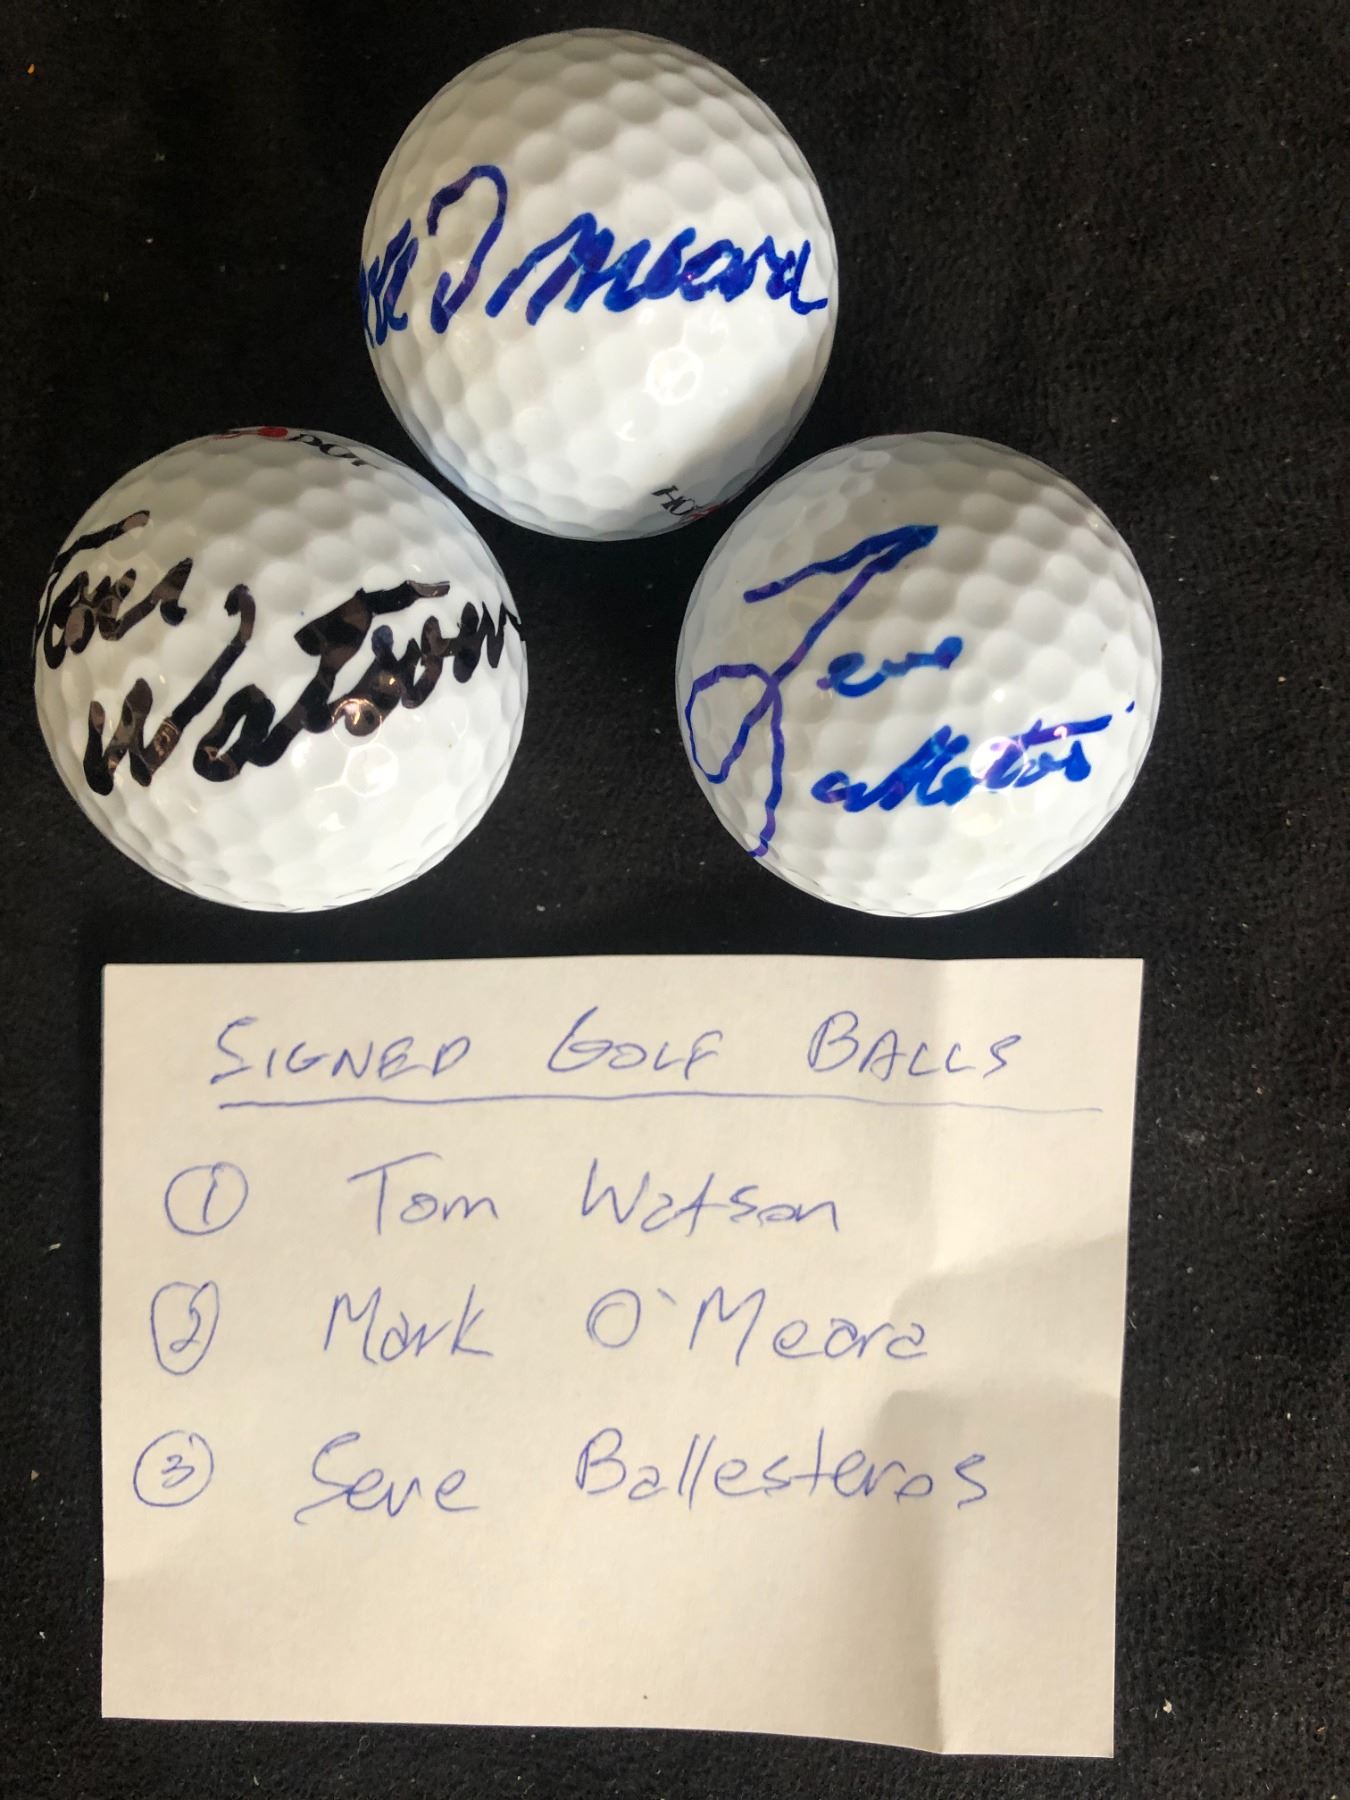 O'Meara
DOT
HO
Tom
Watson
Seve
SIGNED GOLF BALLS
1 Tom Watson
2 Mark O'Meara
3 Seve Ballesteros